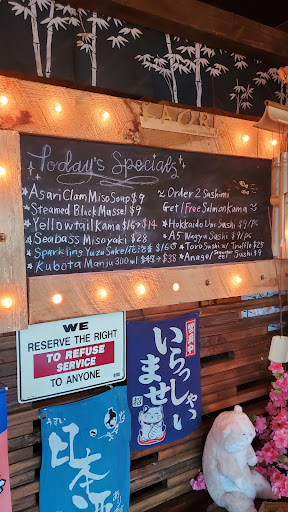 KAORI
Today's Specials
*Asari Clam Miso Soup $9
*Steamed Black Mussel $9
*Yellowtail Kama $16→$14
*Seabass Misoyaki $28
*Sparkling Yuzu Sake/花泡香 $16
*Kubota Manju 300ml $48→$38
*Order 2 Sashimi
Get 1 Free Salmon Kama
*Hokkaido Uni Sushi $9/PC
*A5 Wagyu Sushi $9/PC
*Toro Sushi w/ Truffle $25
*Anago/Sushi $9
WE
RESERVE THE RIGHT
TO REFUSE
SERVICE
TO ANYONE
営業中
いらっしゃい
ませ
うまい
日本酒
あり